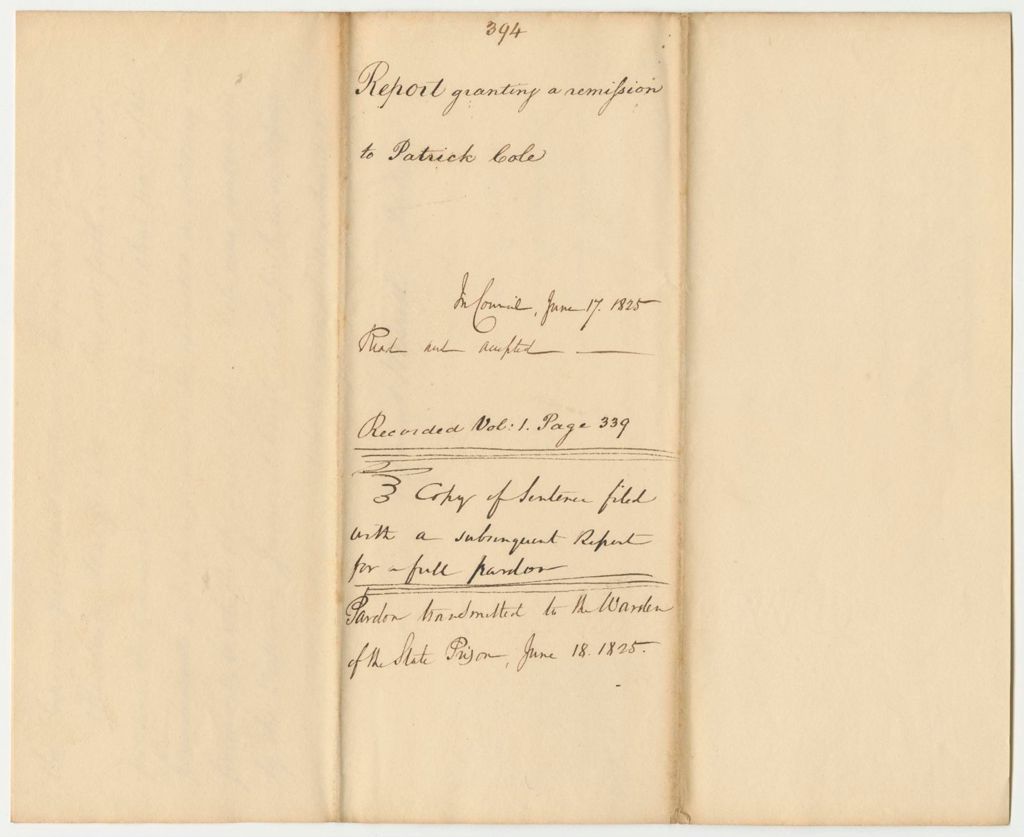 394
Report granting a remission
to Patrick Cole
In Council, June 17. 1825
Read and accepted
Recorded Vol: 1. Page 339
Copy of Sentence filed
with a subsequent Report
for a full pardon
Pardon transmitted to the Warden
of the State Prison, June 18. 1825.